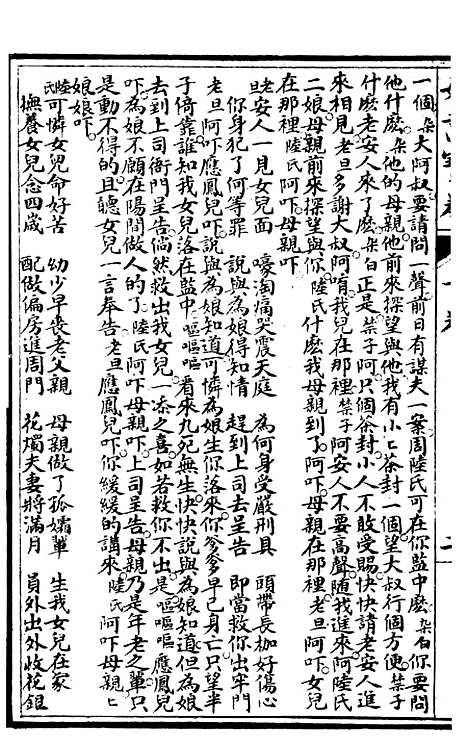 一個 杂大阿叔要請問一聲前日有謀夫一案周陸氏可在你監中麽 杂白你要問
他什麽 杂他的母親他前來探望與他我有小匕茶封一個望大叔行個方便 禁子
什麽老安人來了麽 杂白正是 禁子阿只個茶封小人不敢受賜快快請老安人進
來相見 老旦多謝大叔阿唷我兒在那裡 禁子阿安人不要高聲隨我進來阿陸氏
二娘母親前來探望與你 陸氏什麽我母親到了阿吓母親在那裡 老旦阿吓女兒
在那裡 陸氏阿吓母親吓
老安人一見女兒面 嚎淘痛哭震天庭 為何身受嚴刑具 頭帶長枷好傷心
你身犯了何等罪 說與為娘得知情 趕到上司去呈告 即當救你出牢門
老旦阿吓應鳳兒吓說與為娘知道可憐為娘生你落來你爹爹早已身亡只望半
子倚靠誰知我女兒落在監中 嘔嘔嘔看來九死無生快快說與為娘知道但為娘
去到上司衙門呈告倘然救出我女兒一添之喜如若救你不出是 嘔嘔嘔應鳳兒
吓為娘不願在陽間做人的了 陸氏阿吓母親吓上司呈告母親乃是年老之單只
是動不得的且聽女兒一言奉告 老旦應鳳兒吓你緩緩的講來 陸氏阿吓母親匕
娘娘吓
陸氏可憐女兒命好苦 幼少早喪老父親 母親做了孤孀輩 生我女兒在家
撫養女兒念四歲 配做偏房進周門 花燭夫妻將滿月 員外出外收花銀